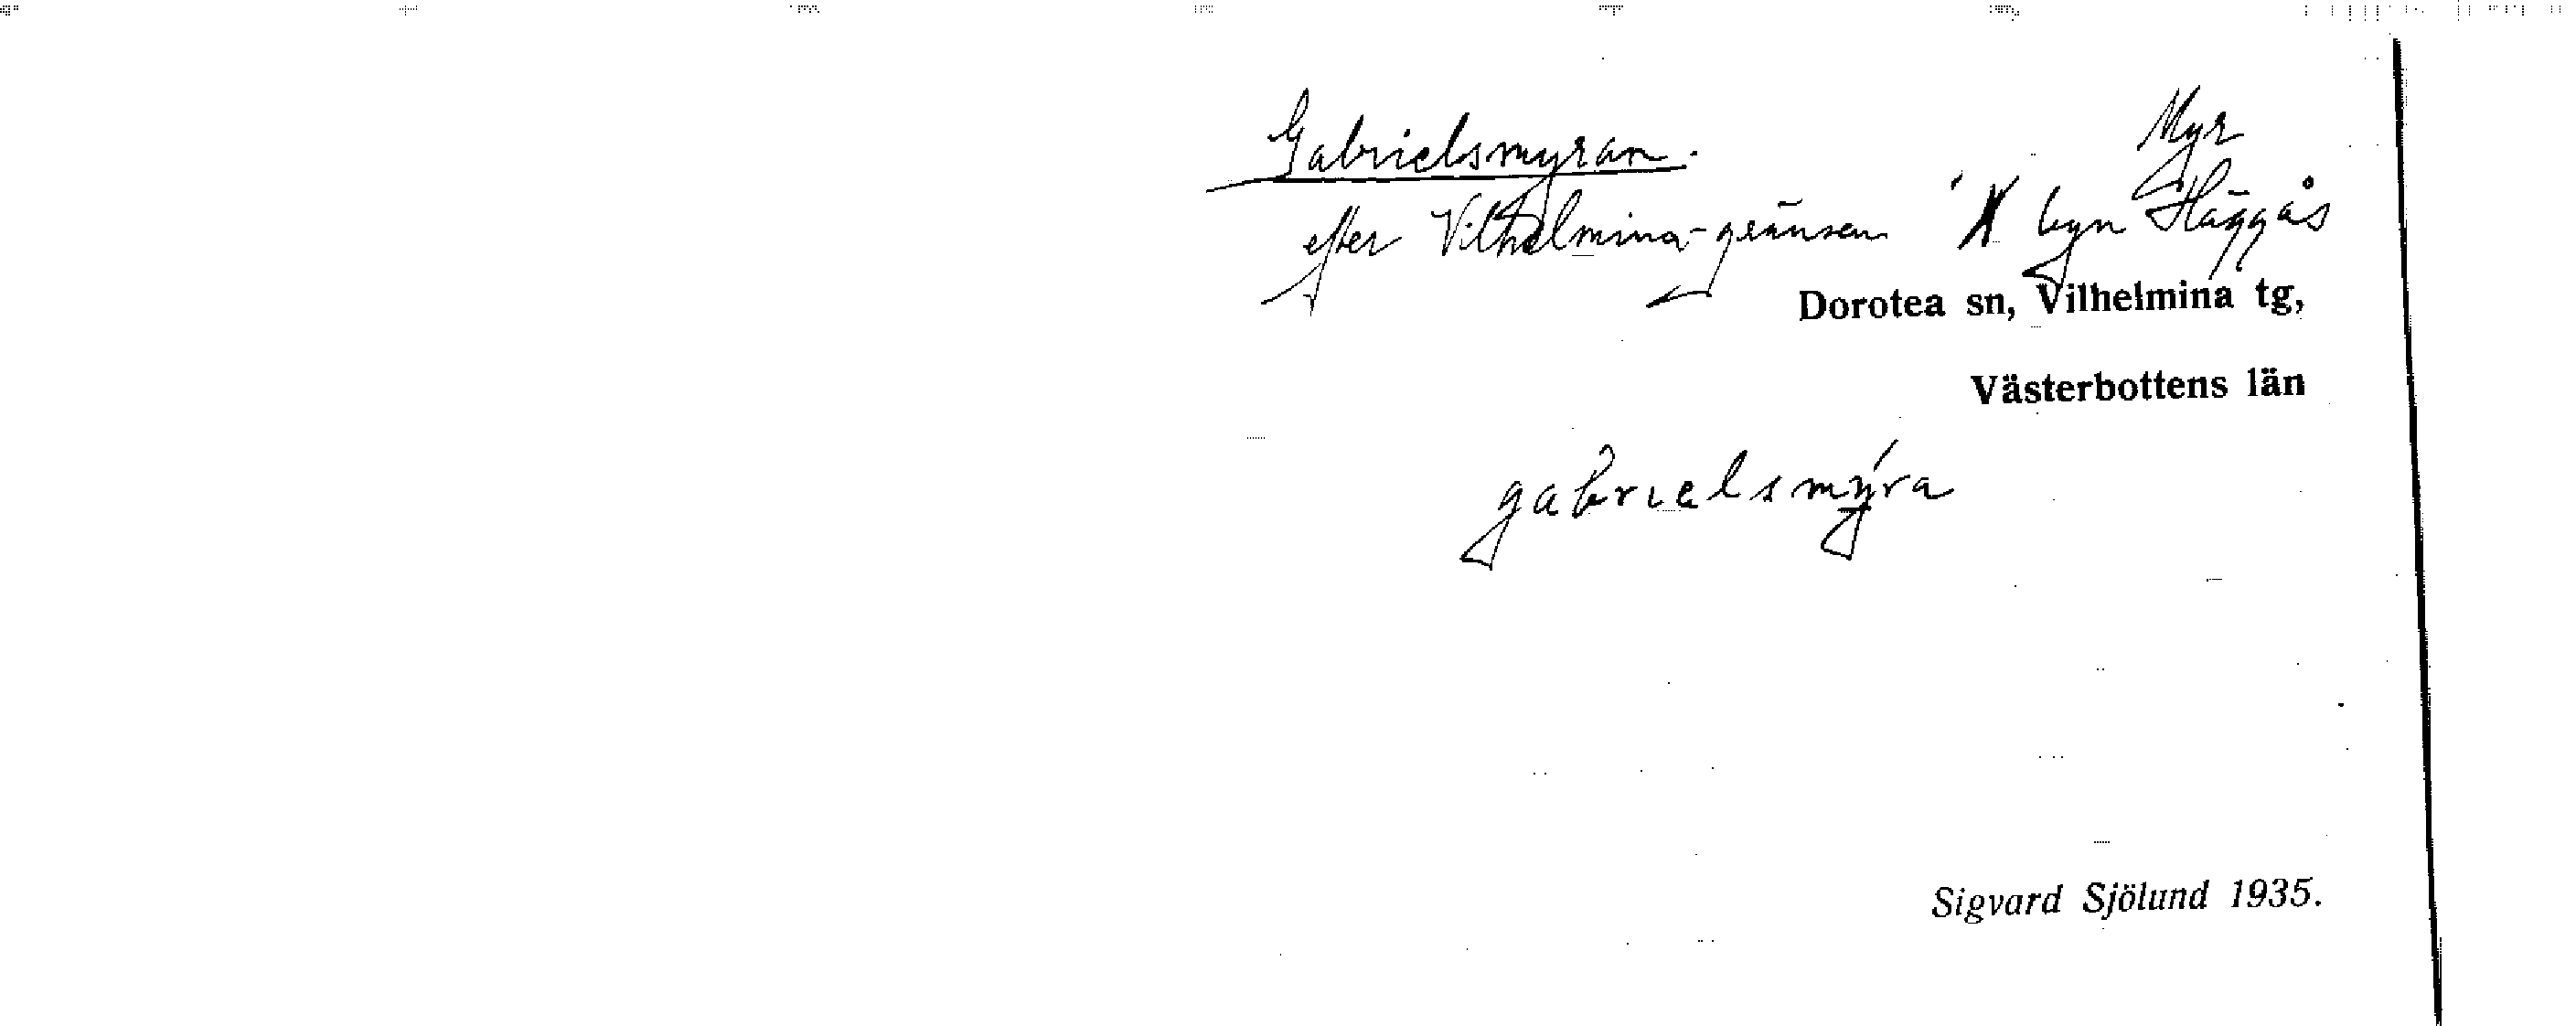 Gabrielsmyran.
Myr
efter Vilhelmina-gränsen
byn Häggås
Dorotea sn, Vilhelmina tg,
Västerbottens län
gabrielsmyra
Sigvard Sjölund 1935.